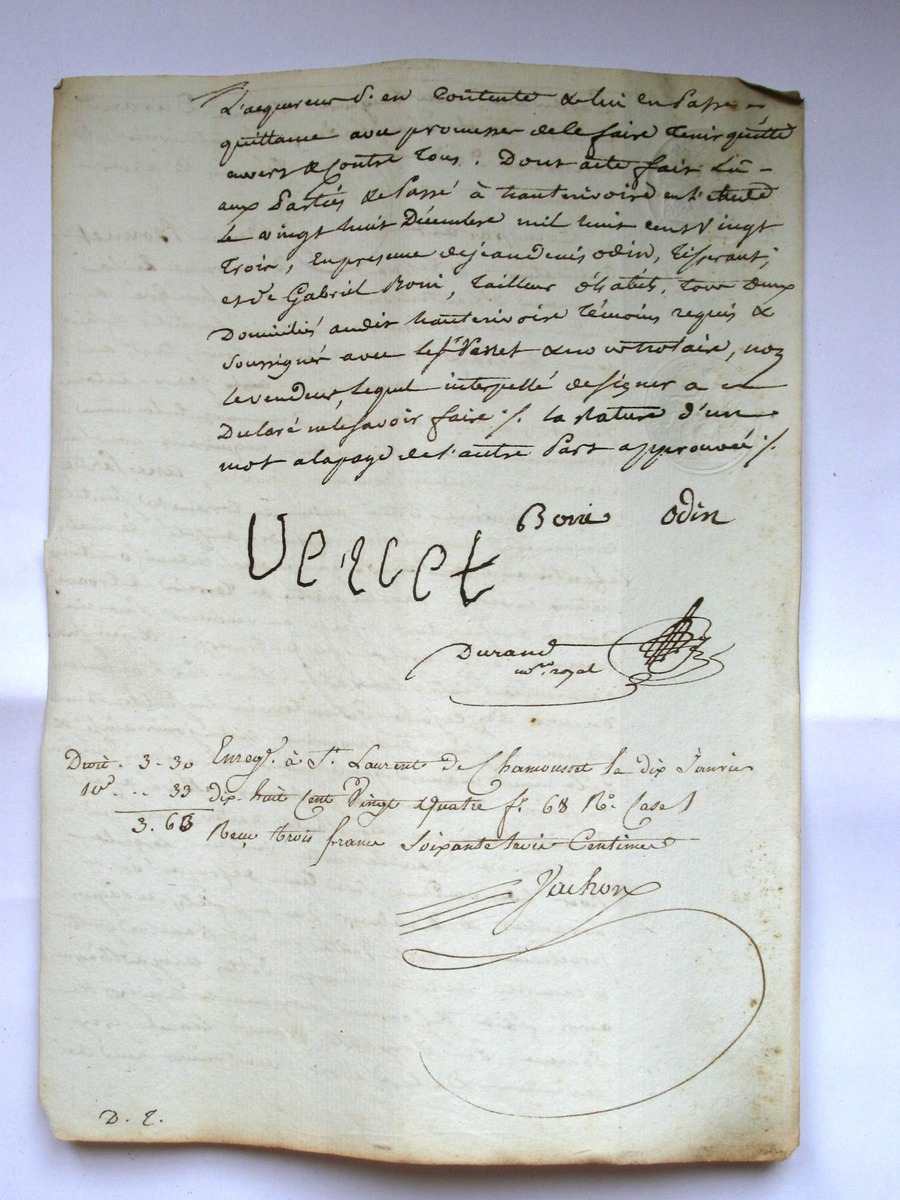 L'aequereur S. en Contente & lui en Passe
quittance avec promesse de le faire Tenir quitte
envers & Contre Tous. Dont acte fait Lû
aux Parties & Passé à hauterivoire en l'étude
Le vingt huit Décembre mil huit cent Vingt
Trois, En presence de jean denis odin, Tisserant,
et de Gabriel Boni, Tailleur d'habits, Tous Deux
Domiciliés audit hauterivoire Témoins requis &
Soussignés avec led.t Verset & no notaire, non
le vendeur, lequel interpellé de signer a
Declaré ne le savoir faire ./. la Rature d'un
mot a la page de l'autre Part approuvée ./.
Boni odin
Verset
Durand
no.re royal
Droit . 3 - 30 Enreg.é à S.t Laurent de Chamousset le dix Janvier
10.e .. 33 dix huit Cent Vingt quatre f.o 68 R.o Case 1
3. 63 Reçu trois francs Soixante trois Centimes
Vachon
D. 2.